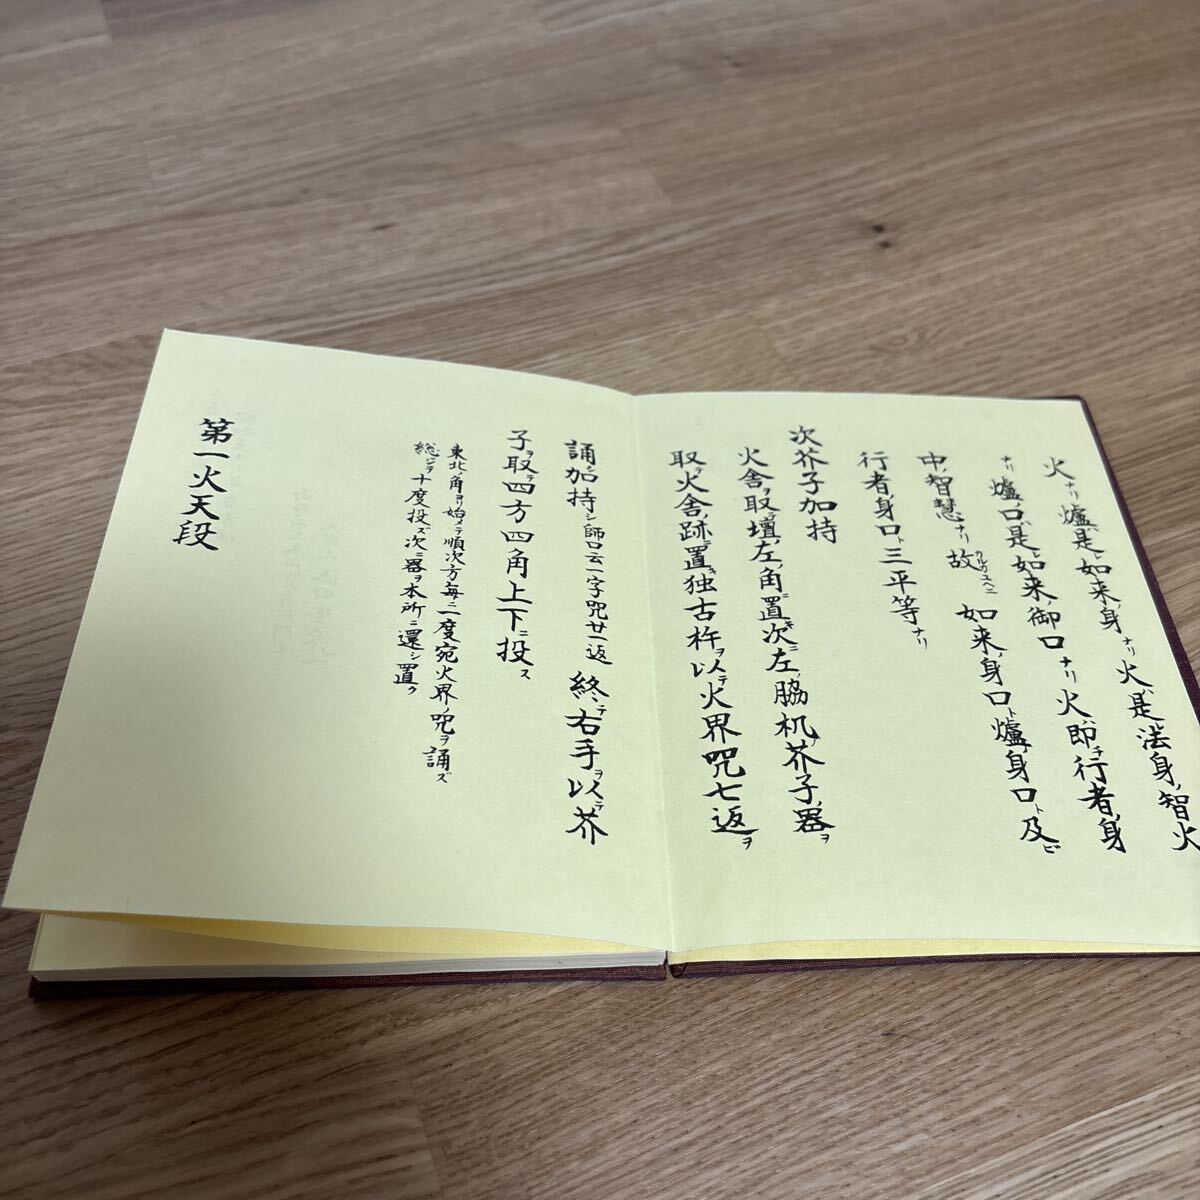 火ナリ爐ハ是レ如来ノ身ナリ火ハ是レ法身ノ智火
ナリ爐ノ口ハ是レ如来ノ御口ナリ火ハ即チ行者ノ身
中ノ智慧ナリ故カルガユヘニ如来ノ身口ト爐ノ身口ト及ビ
行者ノ身口ト三平等ナリ
次芥子加持
火舎ヲ取テ壇ノ左ノ角ニ置キ次ニ左ノ脇机ノ芥子ノ器ヲ
取テ火舎ノ跡ニ置キ独古杵ヲ以テ火界咒七返ヲ
誦シ加持シ師口云一字咒廿一返 終テ右手ヲ以テ芥
子ヲ取テ四方四角上下ニ投ス
東北ノ角ヨリ始メテ順次方毎ニ一度宛火界ノ咒ヲ誦ズ
総ジテ十度投ズ次ニ器ヲ本所ニ還シ置ク
第一火天段